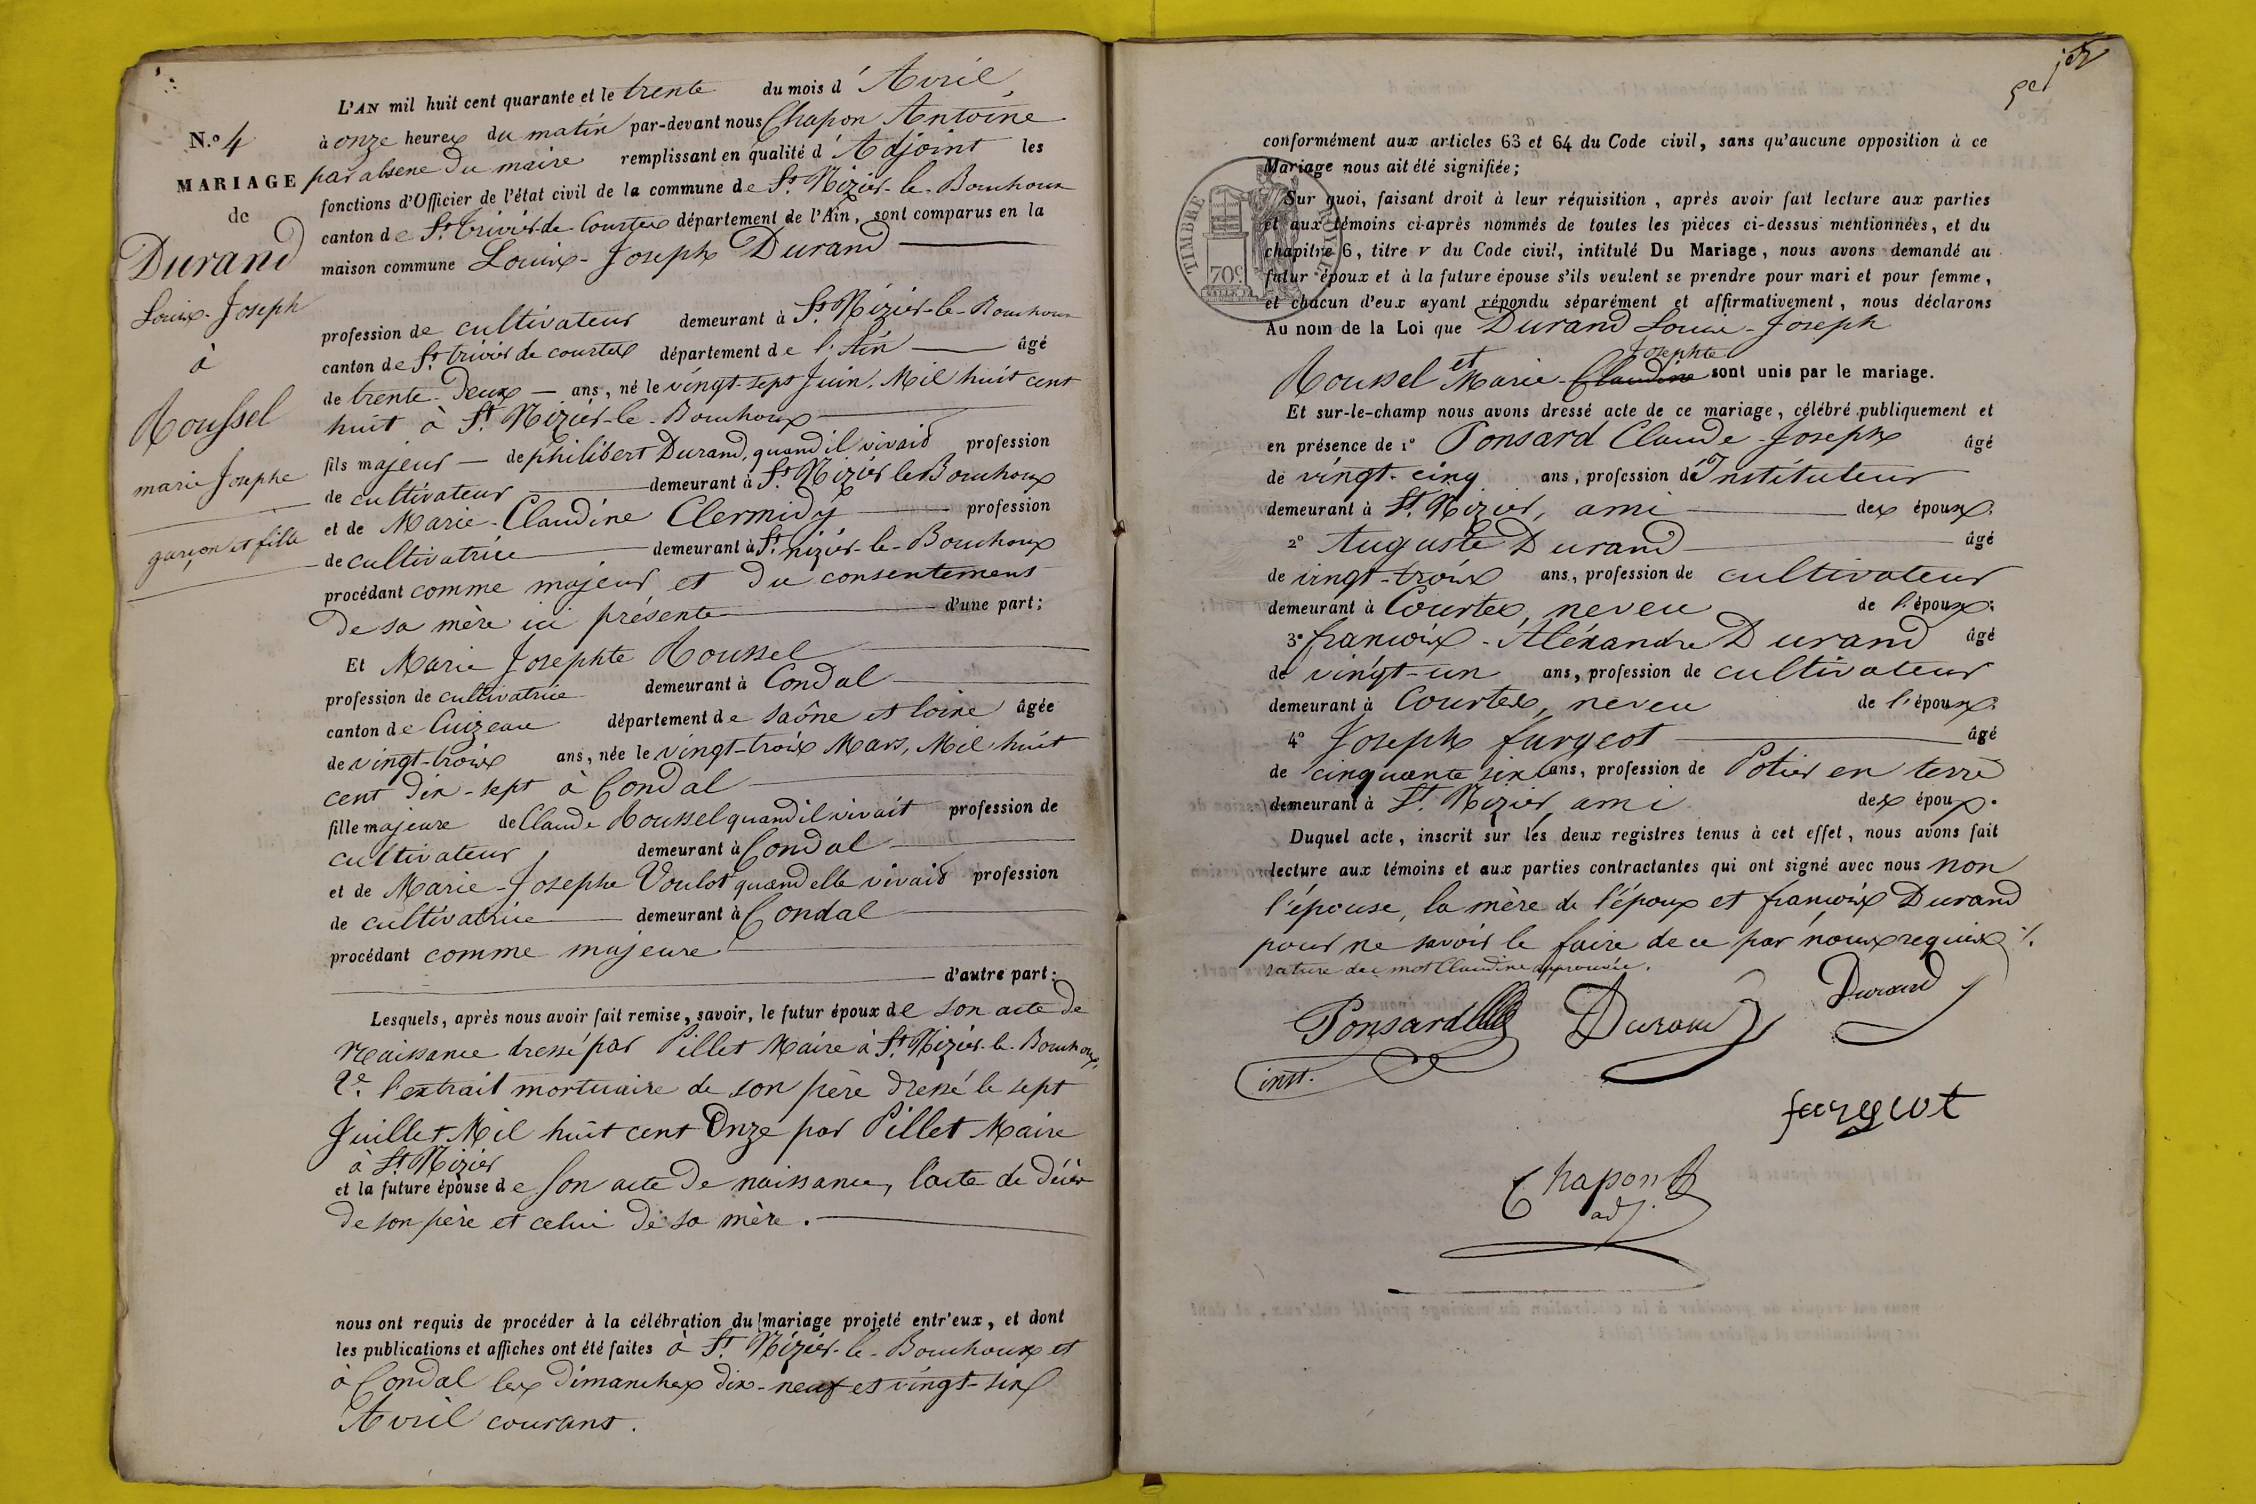 N.º 4
MARIAGE
de
Durand
Louis-Joseph
à
Roussel
marie Josephe
garçon et fille
L'AN mil huit cent quarante et le trente du mois d' Avril,
à onze heures du matin par-devant nous Chapon Antoine
par absene du maire remplissant en qualité d' Adjoint les
fonctions d'Officier de l'état civil de la commune de St. Nizier-le-Bouchoux
canton de St. trivier de Courtes département de l'Ain, sont comparus en la
maison commune Louis-Joseph Durand
profession de cultivateur demeurant à St. Nizier-le-Bouchoux
canton de St. trivier de courtes département de l'Ain âgé
de trente-deux ans, né le vingt-sept Juin, Mil huit cent
huit à St. Nizier-le-Bouchoux
fils majeur de philibert Durand, quand il vivait profession
de cultivateur demeurant à St. Nizier le Bouchoux
et de Marie-Claudine Clermidy profession
de cultivatrice demeurant à St. nizier-le-Bouchoux
procédant comme majeur et du consentement
de sa mère ici présente d'une part;
Et Marie Josephte Roussel
profession de cultivatrice demeurant à Condal
canton de Cuizeau département de saône et loire âgée
de vingt-trois ans, née le vingt-trois Mars, Mil huit
cent dix-sept à Condal
fille majeure de Claude Roussel quand il vivait profession de
cultivateur demeurant à Condal
et de Marie-Josephe Voulot quand elle vivait profession
de cultivatrice demeurant à Condal
procédant comme majeure
d'autre part;
Lesquels, après nous avoir fait remise, savoir, le futur époux de son acte de
Naissance dressé par Pillet Maire à St. Nizier-le-Bouchoux,
2º. l'extrait mortuaire de son père dressé le sept
Juillet Mil huit cent Onze par Pillet Maire
à St. Nizier
et la future épouse de son acte de naissance, l'acte de décès
de son père et celui de sa mère.
nous ont requis de procéder à la célébration du mariage projeté entr'eux, et dont
les publications et affiches ont été faites à St. Nizier-le-Bouchoux et
à Condal les dimanches dix-neuf et vingt-six
Avril courant.
conformément aux articles 63 et 64 du Code civil, sans qu'aucune opposition à ce
Mariage nous ait été signifiée;
TIMBRE ROYAL
70c
Sur quoi, faisant droit à leur réquisition, après avoir fait lecture aux parties
et aux témoins ci-après nommés de toutes les pièces ci-dessus mentionnées, et du
chapitre 6, titre v du Code civil, intitulé Du Mariage, nous avons demandé au
futur époux et à la future épouse s'ils veulent se prendre pour mari et pour femme,
et chacun d'eux ayant répondu séparément et affirmativement, nous déclarons
Au nom de la Loi que Durand Louis-Joseph
et Josephte
Roussel Marie-Claudine sont unis par le mariage.
Et sur-le-champ nous avons dressé acte de ce mariage, célébré publiquement et
en présence de 1º Ponsard Claude-Joseph âgé
de vingt-cinq ans, profession d'Instituteur
demeurant à St. Nizier, ami des époux;
2º Auguste Durand âgé
de vingt-trois ans, profession de cultivateur
demeurant à Courtes, neveu de l'époux;
3º françois-Aléxandre Durand âgé
de vingt-un ans, profession de cultivateur
demeurant à Courtes, neveu de l'époux;
4º Joseph furgeot âgé
de cinquante six ans, profession de Potier en terre
demeurant à St. Nizier, ami des époux.
Duquel acte, inscrit sur les deux registres tenus à cet effet, nous avons fait
lecture aux témoins et aux parties contractantes qui ont signé avec nous non
l'épouse, la mère de l'époux et françois Durand
pour ne savoir le faire de ce par nous requis ·/.
rature du mot Claudine approuvée.
Ponsard Durand Durand
inst.
furgeot
Chapon
adj.